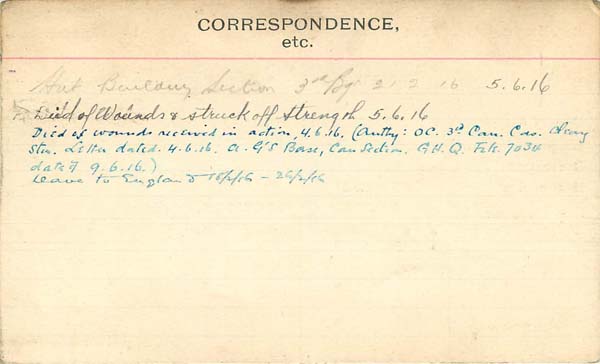 CORRESPONDENCE,
etc.
Hut Building Section 3rd Bg 21 2 16 5.6.16
Died of Wounds & struck off strength 5.6.16
Died of wounds received in action, 4.6.16. (Authy: OC. 3d Can. Cas. Clearg
Stn. Letter dated 4.6.16. A.G'S Base, Can Section. G.H.Q. File 7034
dated 9.6.16.)
Leave to England 18/2/16 - 26/2/16